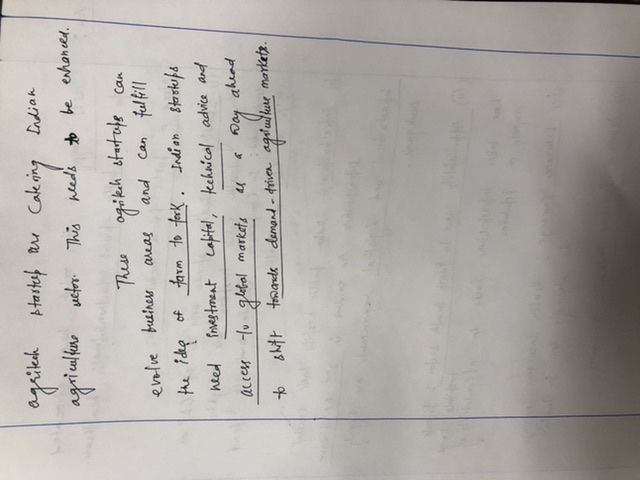 aggritech startup are Catering Indian
agriculture sector. This needs to be enhanced.
These agritech startups can
evolve business areas and can fulfill
the idea of farm to fork. Indian startups
need investment capital, technical advice and
access to global markets as a way ahead
to shift towards demand-driven agriculture markets.